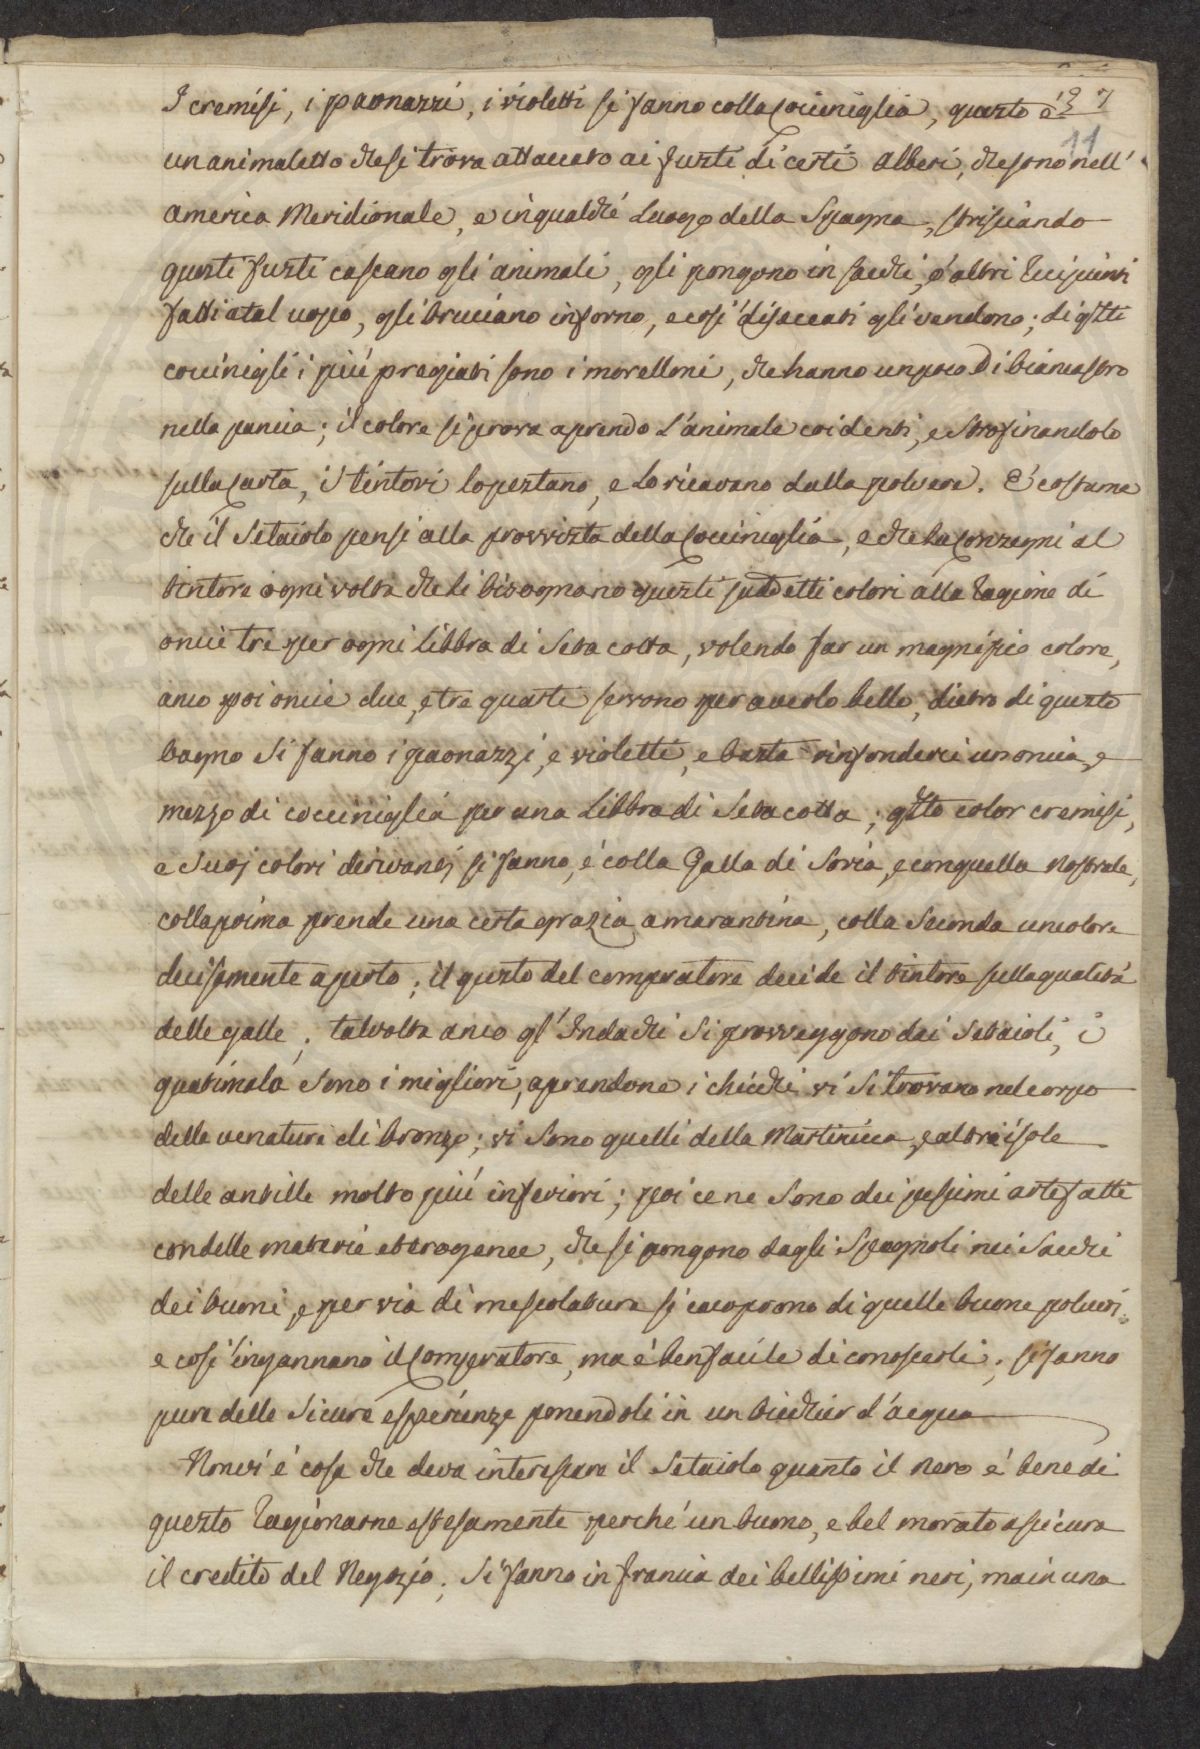 I cremisi, i paonazzi, i violetti si fanno colla Cocciniglia, questo è 27
11
un animaletto che si trova attaccato ai fusti di certi alberi, che sono nell'
america Meridionale, e in qualche Luogo della Spagna, strisciando
questi fusti cascano gli animali, gli pongono in sacchi, o altri recipienti
fatti a tal uopo, gli bruciano in forno, e così disseccati gli vendono; di qsti
coccinigli i più pregiati sono i morelloni, che hanno un poco di biancastro
nella pancia; il colore si prova aprendo L'animale coi denti, e strofinandolo
sulla Carta, i tintori lo pestano, e lo ricavano dalla polvere. È costume
che il Setaiolo pensi alla provvista della Cocciniglia, e che la Consegni al
tintore ogni volta che li bisognano questi suddetti colori alla ragione di
oncie tre per ogni libbra di Seta cotta, volendo far un magnifico colore,
anco poi oncie due, e tre quarti servono per averlo bello, dietro di questo
bagno si fanno i paonazzi, e violetti, e basta rinfonderci un oncia, e
mezzo di cocciniglia per una Libbra di Seta cotta; qsto color cremisi,
e Suoj colori derivanti si fanno, e colla Galla di Soria, e con quella nostrale,
colla prima prende una certa grazia amarantina, colla Seconda un colore
decisamente aperto; il gusto del compratore decide il tintore sulla qualità
delle galle; talvolta anco gl'Indachi si provveggono dai Setaioli, i
guatimala sono i migliori, aprendone i chicchi vi si trovano nel corpo
delle venature di bronzo; vi sono quelli della Martinicca, e altre isole
delle antille molto più inferiori; poi ce ne sono dei pessimi artefatti
con delle materie eterogenee, che si pongono dagli Spagnoli nei Sacchi
dei buoni, e per via di mescolatura si cuoprono di quelle buone polveri
e così ingannano il Compratore, ma è ben facile di conoscerli; si fanno
pure delle Sicure esperienze ponendoli in un bicchier d'acqua
Non vi è cosa che deva interessare il Setaiolo quanto il nero è bene di
questo ragionarne estesamente perchè un buono, e bel morato assicura
il credito del Negozio; Si fanno in francia dei bellissimi neri, ma in una